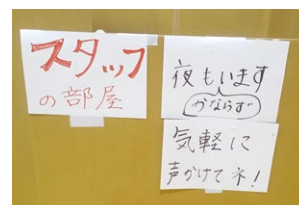 スタッフ
の部屋
夜もいます
かならず
気軽に
声かけてネ!